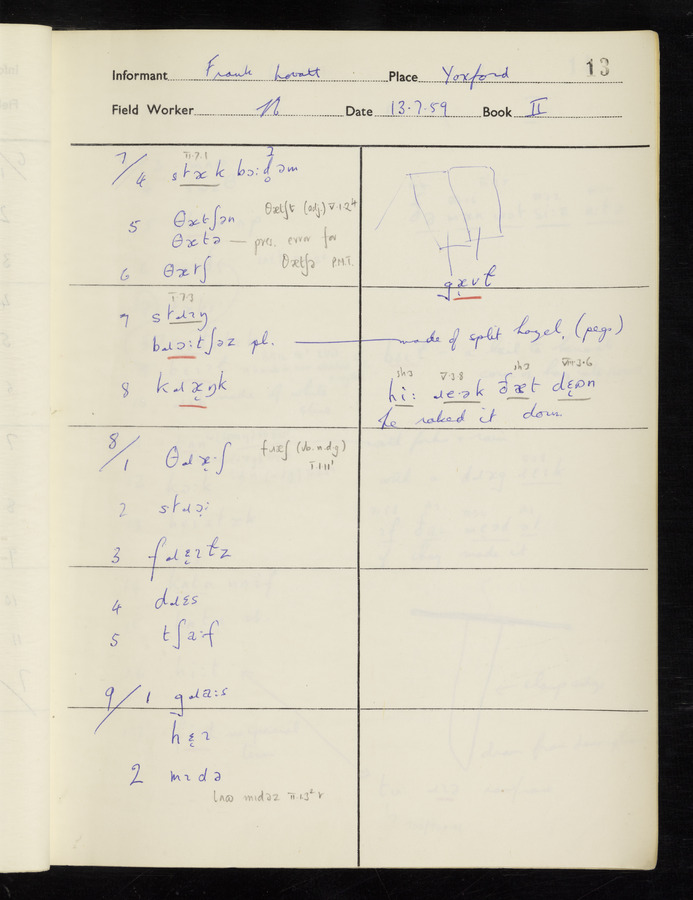 Informant Frank Lovatt Place Yoxford 13
Field Worker N Date 13.7.59 Book II
II.7.1
7/4 stæk bɔ:dəm
5 θætʃən θætʃt (adj.) V.1.2
θætə — pres. error for
θætʃə P.M.T.
6 θætʃ
gævt
II.7.3
7 stɹɪŋ
bɹɔ:tʃəz pl. — made of split hazel, (pegs)
8 kɹæŋk
sh ɜ V.3.8 sh ɜ VII.3.6
hi: ɹe·ək ðæt dɛʊn
he raked it down
8/1 θɹæ·ʃ fɹæʃ (vb. n.d.g)
2 stɹɔ:
3 fɹɛɪtz
4 dɹɛs
5 tʃa:f
9/1 gɹa:s
hɛɪ
2 mɪdə
mɪdəz II.1.3